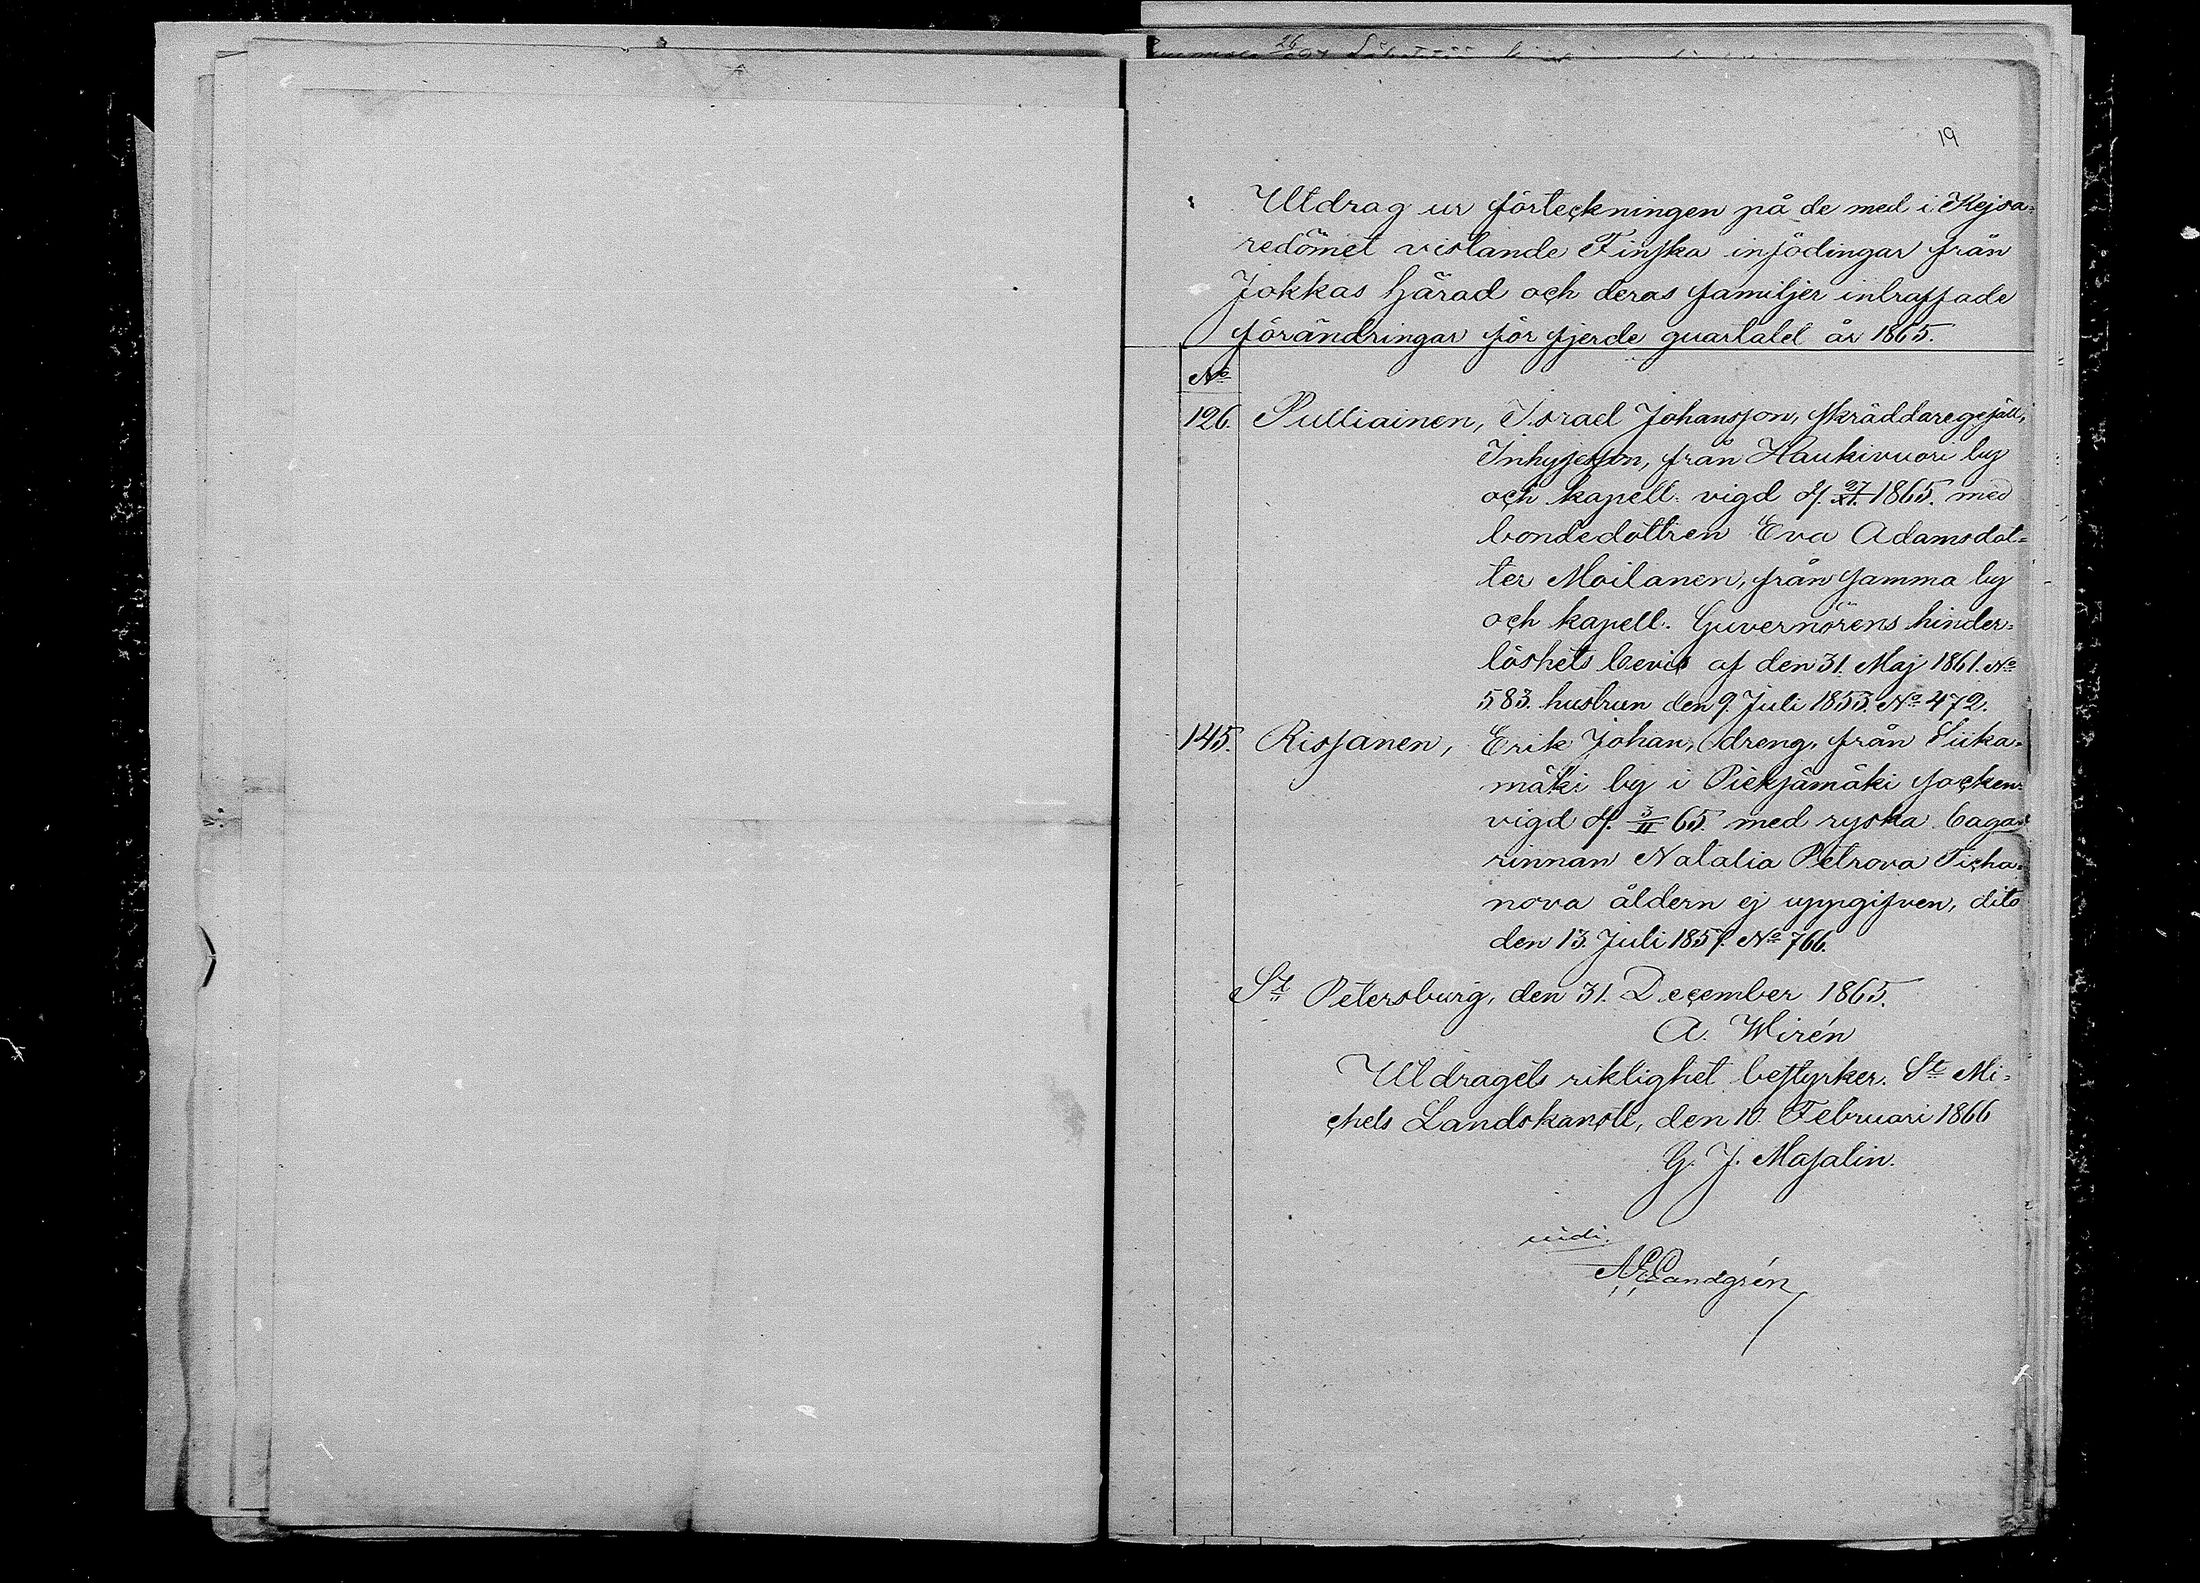 19
Utdrag ur förteckningen på de med i Kejsa=
redömet vistande Finska infödingar från
Jokkas härad och deras familjer intraffade
förändringar för fjerde quartalet år 1865.
No
126. Pulliainen, Israel Johansson, skräddaregesäll,
Inhyseson, från Haukivuori by
och kapell. vigd d. 27/XI. 1865. med
bondedottren Eva Adamsdot=
ter Moilanen, från Jamma by
och kapell. Guvernörens hinder=
löshets bevis af den 31. Maj 1861. No
583. hustrun den 9. Juli 1853. No 472.
145. Rissanen, Erik Johan, dreng, från Siika=
mäki by i Pieksämäki socken.
vigd d. 3/II 65. med ryska baga=
rinnan Natalia Petrova Ticha=
nova åldern ej uppgifven, dito
den 13. Juli 1857. No 766.
St Petersburg, den 31. December 1865.
A. Wirén
Utdragets riktighet bestyrker. St Mi=
chels Landskansli, den 10. Februari 1866
G. J. Masalin.
vidi.
Landgrén